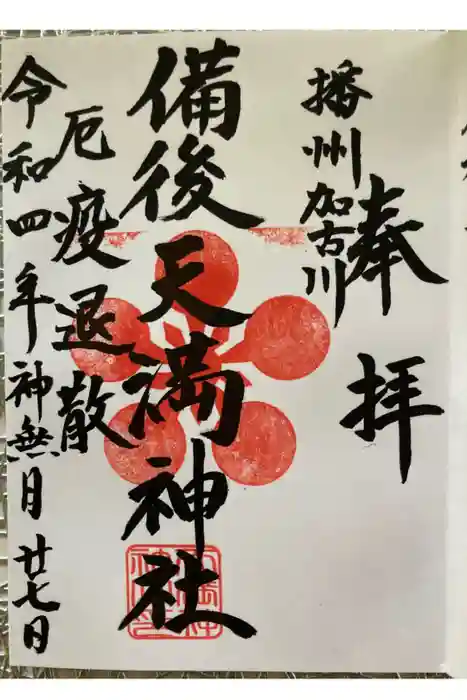 奉拝
播州加古川
備後天満神社
厄疫退散
令和四年神無月廿七日